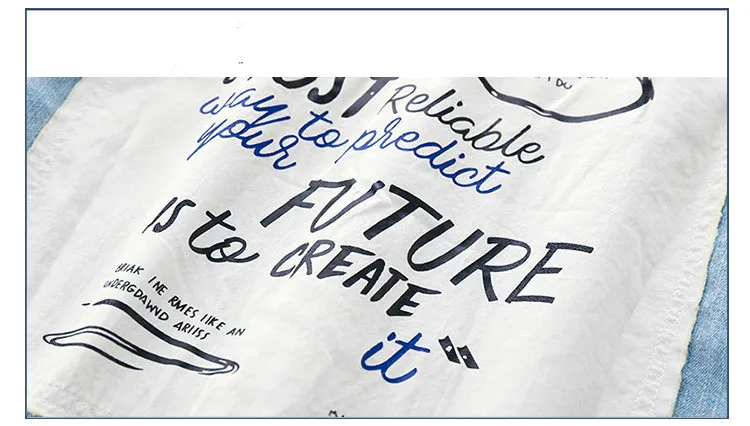 MOST Reliable
way to predict
your
FUTURE
is to CREATE
it"
BRIAK INE RMES IIKE AN
UNDERGDAWND ARIISS